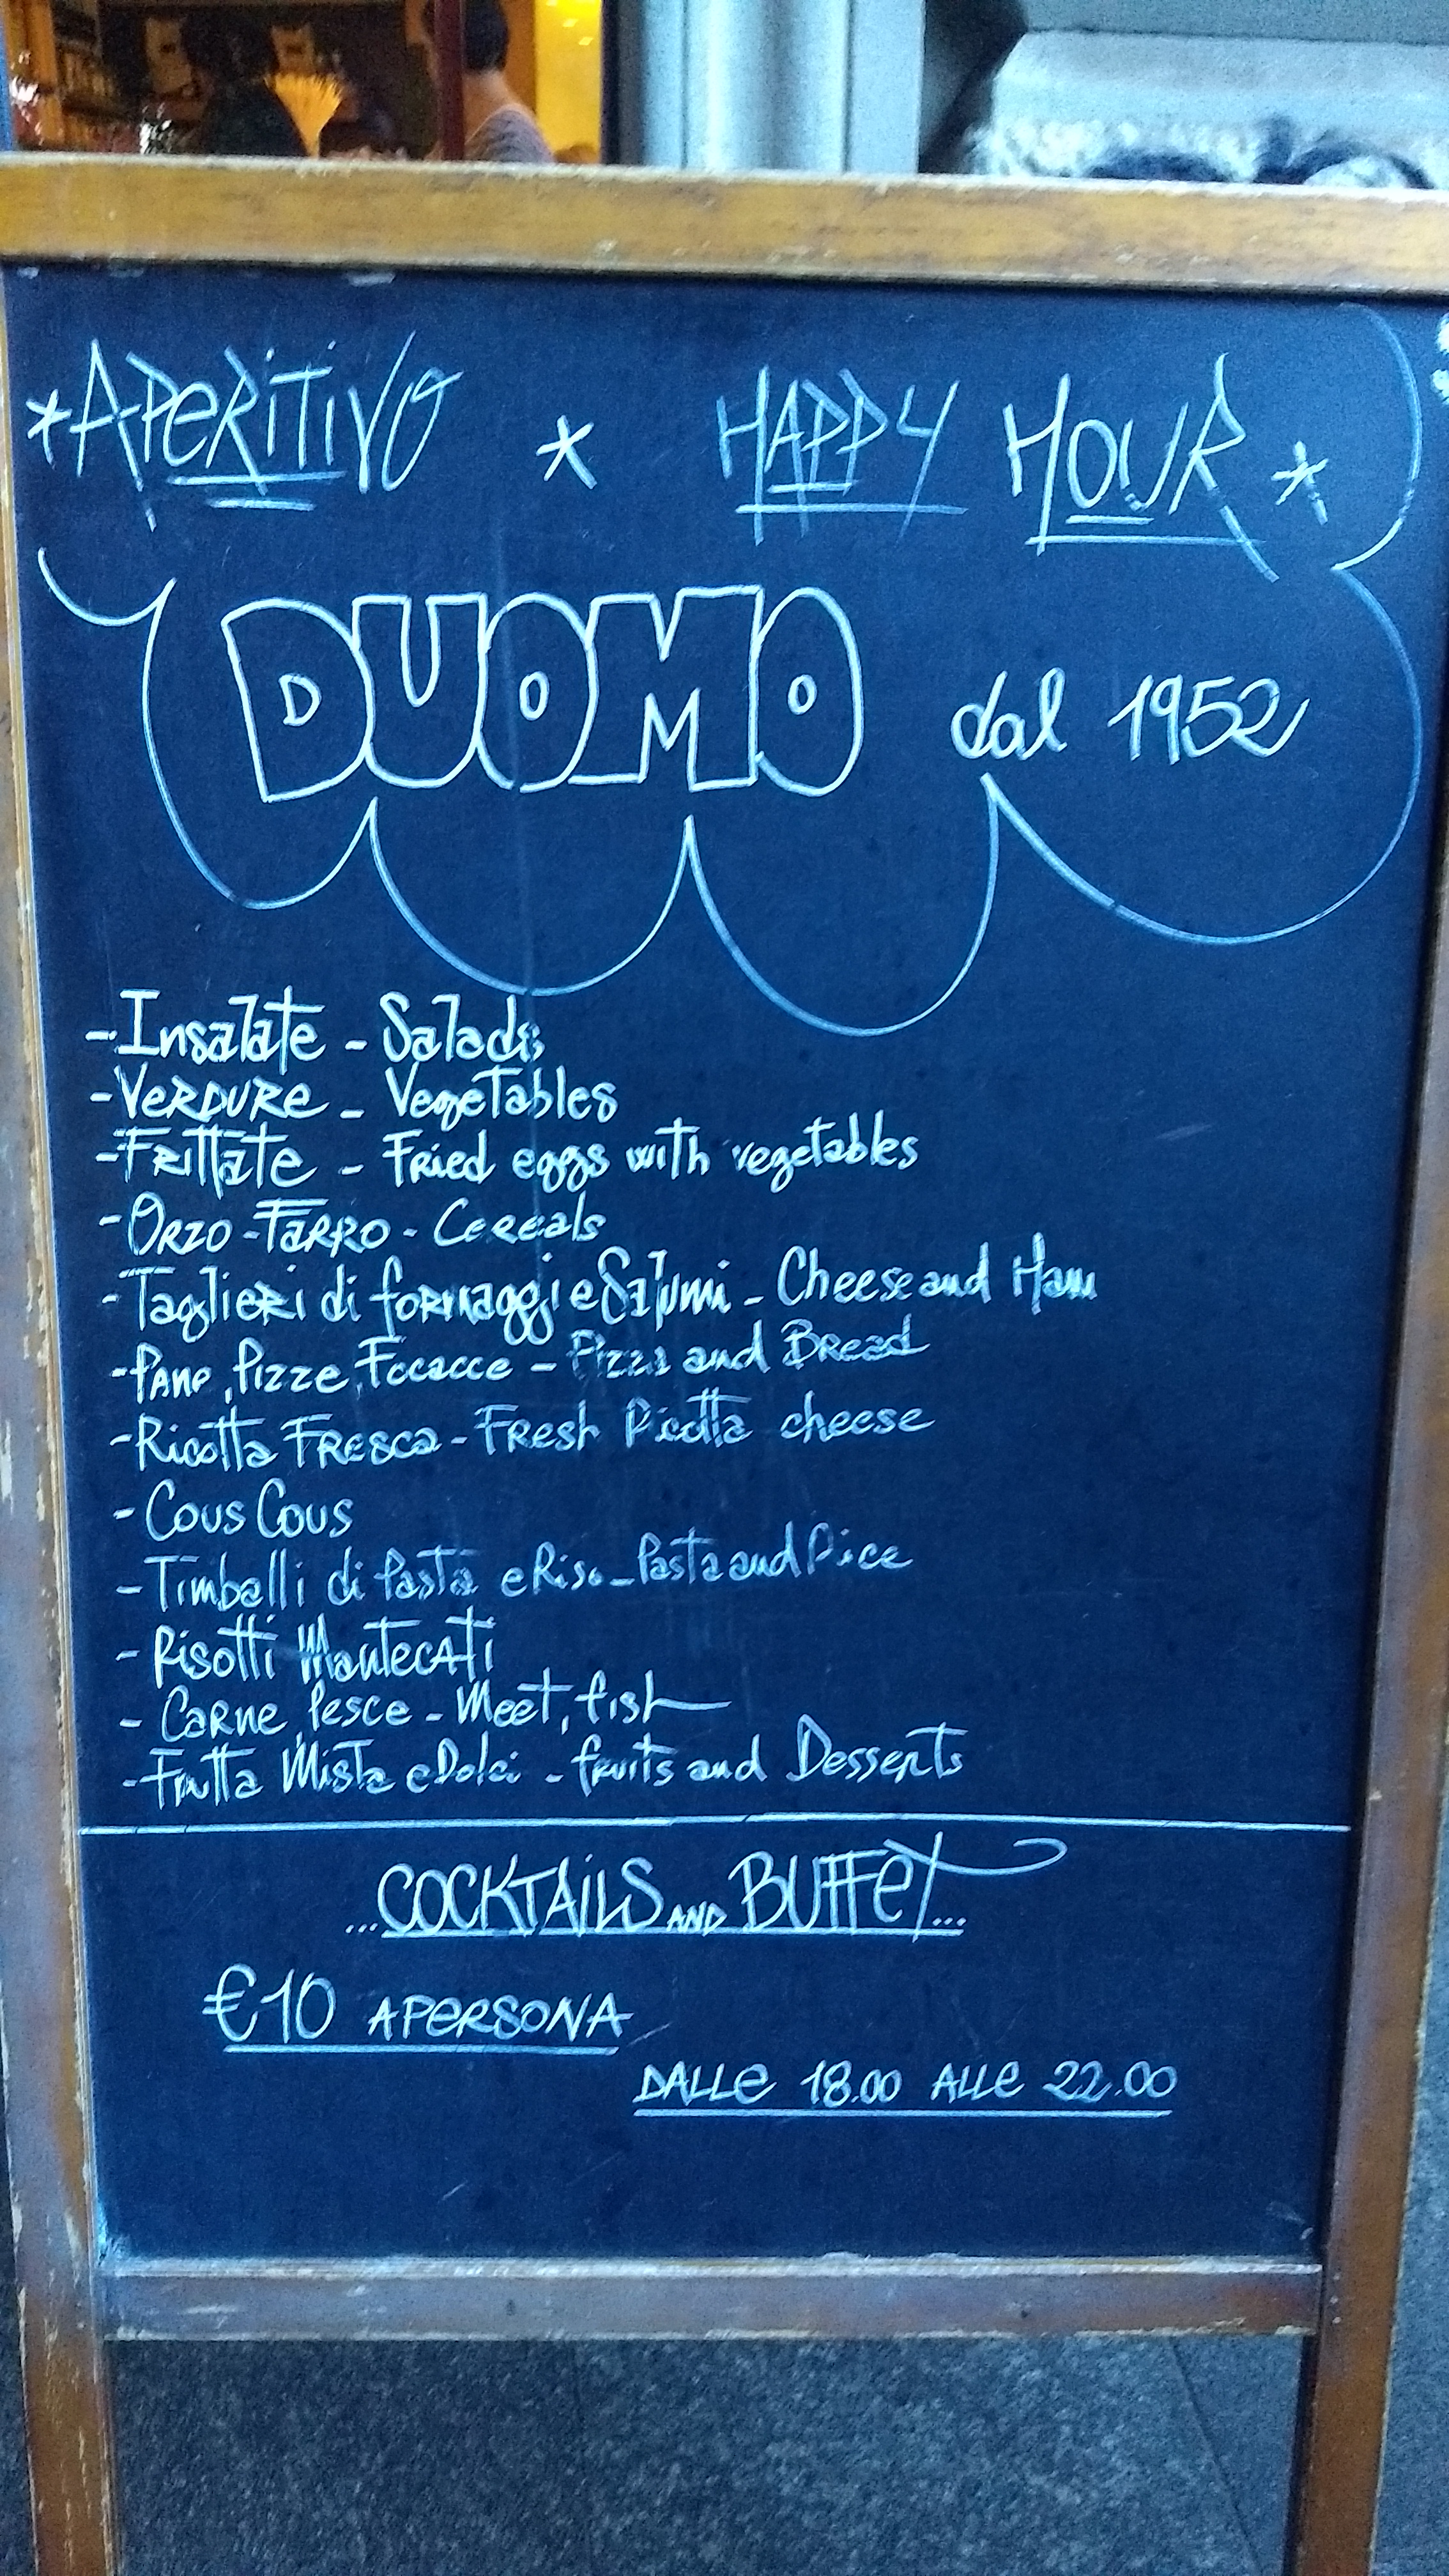 *APERITIVO * HAPPY HOUR *
DUOMO dal 1952
- Insalate - Salads
- VERDURE - Vegetables
- Frittate - Fried eggs with vegetables
- Orzo - Farro - Cereals
- Taglieri di formaggi e Salumi - Cheese and Ham
- Pane, Pizze, Focacce - Pizza and Bread
- Ricotta Fresca - Fresh Ricotta cheese
- Cous Cous
- Timballi di Pasta e Riso - Pasta and Rice
- Risotti Mantecati
- Carne, Pesce - Meet, fish
- Frutta Mista e Dolci - fruits and Desserts
...COCKTAILS AND BUFFET...
€10 A PERSONA
DALLE 18.00 ALLE 22.00